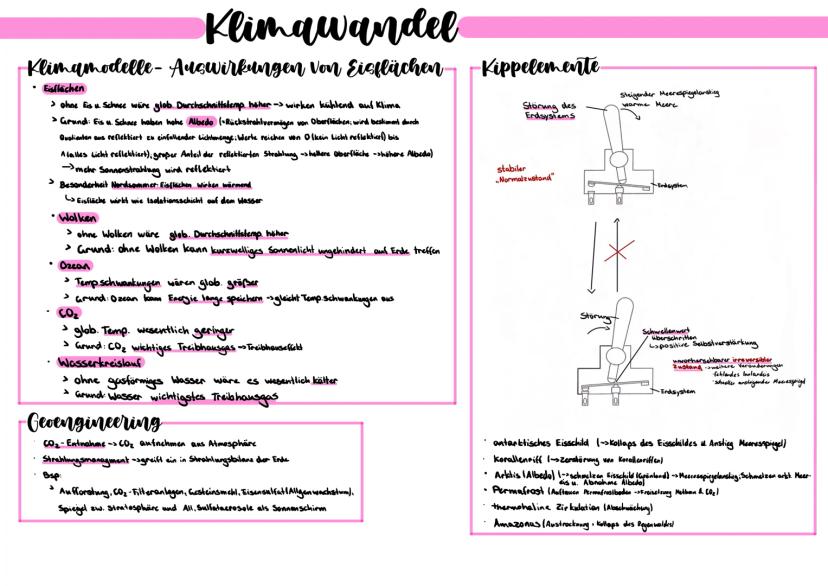 Klimawandel
Klimamodelle - Auswirkungen von Eisflächen
• Eisflächen
> ohne Eis u. Schnee wäre glob. Durchschnittstemp. höher -> wirken kühlend auf Klima
> Grund: Eis u. Schnee haben hohe Albedo (=Rückstrahlvermögen von Oberflächen; wird bestimmt durch
Quotienten aus reflektiert zu einfallender Lichtmenge; Werte reichen von 0 (kein Licht reflektiert) bis
1 (alles Licht reflektiert); großer Anteil der reflektierten Strahlung -> hellere Oberfläche -> höhere Albedo)
-> mehr Sonnenstrahlung wird reflektiert
> Besonderheit Nordsommer: Eisflächen wirken wärmend
↳ Eisfläche wirkt wie Isolationsschicht auf dem Wasser
• Wolken
> ohne Wolken wäre glob. Durchschnittstemp. höher
> Grund: ohne Wolken kann kurzwelliges Sonnenlicht ungehindert auf Erde treffen
• Ozean
> Temp.schwankungen wären glob. größer
> Grund: Ozean kann Energie lange speichern -> gleicht Temp.schwankungen aus
• CO₂
> glob. Temp. wesentlich geringer
> Grund: CO₂ wichtiges Treibhausgas -> Treibhauseffekt
• Wasserkreislauf
> ohne gasförmiges Wasser wäre es wesentlich kälter
> Grund: Wasser wichtigstes Treibhausgas
Geoengineering
• CO₂-Entnahme -> CO₂ aufnehmen aus Atmosphäre
• Strahlungsmanagment -> greift ein in Strahlungsbilanz der Erde
• Bsp:
> Aufforstung, CO₂-Filteranlagen, Gesteinsmehl, Eisensulfat (Algenwachstum),
Spiegel zw. Stratosphäre und All, Sulfataerosole als Sonnenschirm
Kippelemente
Steigender Meeresspiegelanstieg
warme Meere
Störung des
Erdsystems
stabiler
„Normalzustand"
Erdsystem
Störung
Schwellenwert
überschritten
↳ positive Selbstverstärkung
unvorhersehbarer irreversibler
Zustand -> weitere Veränderungen
· fehlendes Inlandeis
· schneller ansteigender Meeresspiegel
Erdsystem
• antarktisches Eisschild (-> Kollaps des Eisschildes u. Anstieg Meeresspiegel)
• Korallenriff (-> Zerstörung von Korallenriffen)
• Arktis (Albedo) (-> schmelzen Eisschild (Grönland) -> Meeresspiegelanstieg; Schmelzen arkt. Meer-
eis u. Abnahme Albedo)
• Permafrost (Auftauen Permafrostboden -> Freisetzung Methan & CO₂)
• thermohaline Zirkulation (Abschwächung)
• Amazonas (Austrocknung + Kollaps des Regenwaldes)